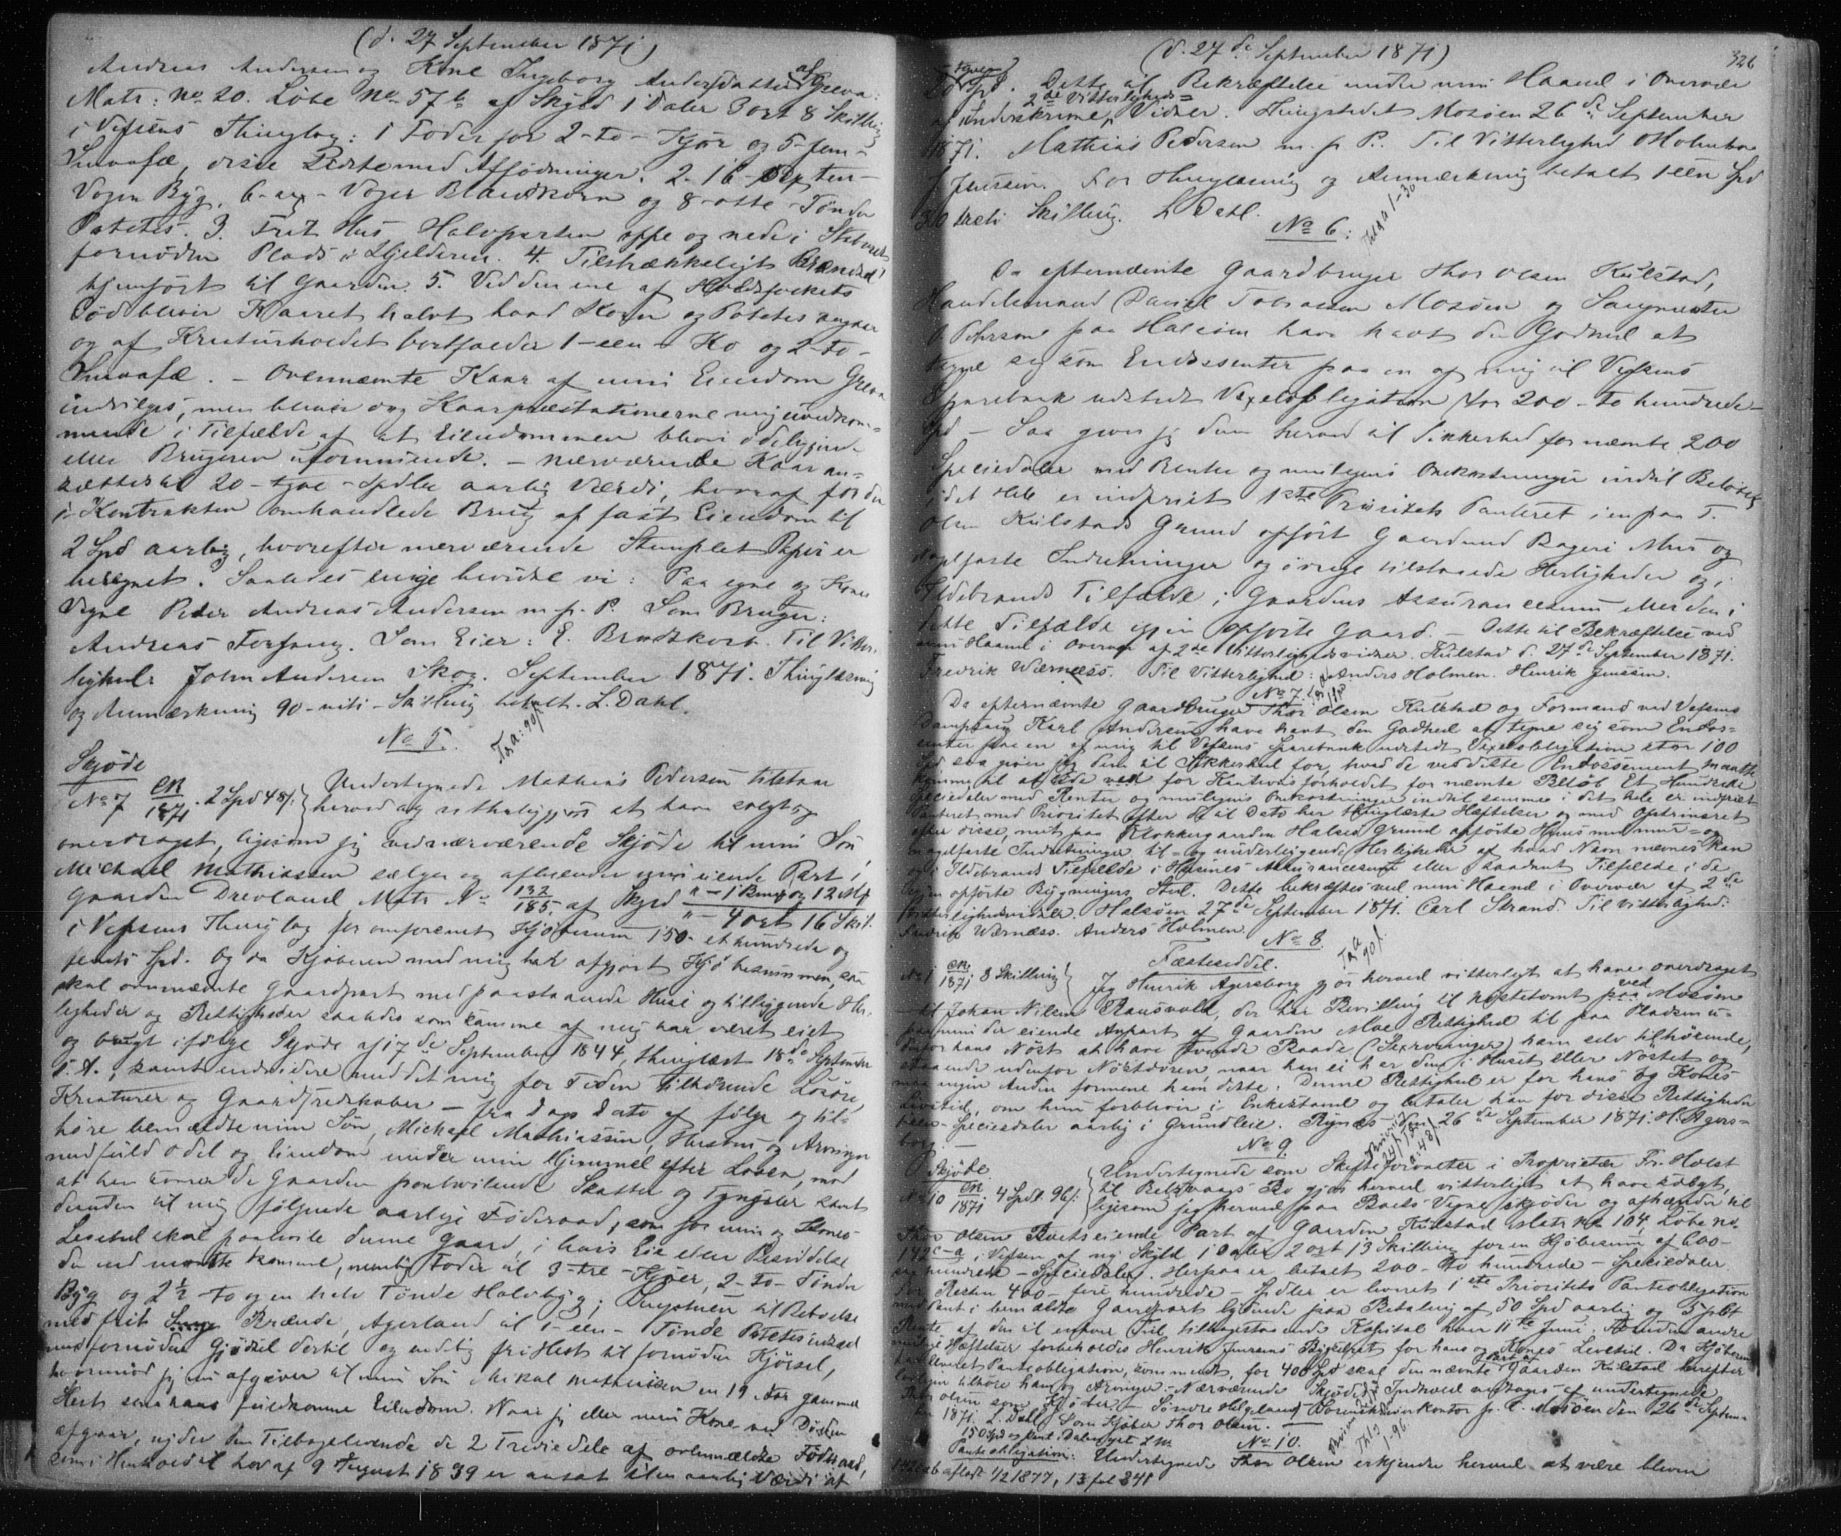 (d. 27 September 1871)
Andreas Andersen og Kone Ingeborg Andersdatter af Greva:
Matr: No 20. Löbe No 57b af Skyld 1 Daler 3 ort 8 Skilling
i Vefsens Thinglag: 1 Foder for 2-to-Kjör og 5-fem-
Smaafæ, disse Röktemed Affödninger. 2. 16-sexten-
Voger Byg, 6-sex-Voger Blandkorn og 8-otte-Tönder
Potetes. 3. Frit Hus Halvparten oppe og nede i Staburet
fornöden Plads i Kjelderen. 4. Tilstrækkeligt Brænde
hjemfört til Gaarden. 5. Ved den ene af Holdsfolkets
Död bliver Kaaret halvt hvad Korn og Potetes angaar
og af Kreaturholdet bortfalder 1-een-Ko og 2-to-
Smaafæ. - Ovennævnte Kaar af min Eiendom Greva
indvilges, men bliver dog Kaarpræstationerne mig uvedkom-
mende i Tilfælde af at Eiendommen blev ödeliggende
eller Brugeren uformuende. - Nærværende Kaar an-
sættes til 20-tyve-Spdlr aarlig Værdi, hvoraf for den
i Kontrakten omhandlede Brug af fast Eiendom til
2 Spd aarlig, hvorefter nærværende Stemplet Papir er
beregnet. Saaledes enige bevidne vi: Paa egne og Kones
Vegne Peder Andreas Andersen m. p. P. Som Bruger:
Andreas Forsang. Som Eier: E. Brodtkorb. Til Vitter-
lighed: John Andersen Skog. September 1871. Thinglæsning
og Anmærkning 90-niti-Skilling betalt. L. Dahl.
No 5.
Skjöde
No 7 CM/1871. 2 Spd 48 s. Undertegnede Mathias Pedersen tilstaar
herved og vitterliggjör at have solgt og
overdraget, ligesom jeg ved nærværende Skjöde til min Sön
Michael Mathiassen sælger og afhænder min eiende Part i
Gaarden Drevland Matr No 132/185 af Skyld 1 Bmp og 12 Mk
4 ort 16 Skil.
i Vefsens Thinglag for omforenet Kjöbesum 150-et hundrede og
femti Spd. Og da Kjöberen med mig har afgjort Kjöbesummen, saa
skal ovennævnte Gaardpart med paastaaende Huse og tilliggende Her-
ligheder og Rettigheder saaledes som samme af mig har været eiet
og brugt ifölge Skjöde af 17de September 1844, thinglæst 18de September
s. A., samt endvidere med det mig for Tiden tilhörende Lösöre,
Kreaturer og Gaardsredskaber - fra Dags Dato af fölge og til-
höre bemældte min Sön, Michael Mathiassen, Hustru og Arvinger
med fuld Odel og Eiendom under min Hjemmel efter Loven, mod
at han tilsvarer de Gaarden paahvilende Skatter og Tyngsler samt
derunder til mig fölgende aarlige Föderaad, som for min og Kones
Levetid skal paahvile denne Gaard, i hvis Eie eller Besiddelse
den end maatte komme, nemlig Foder til 3-tre-Kjör, 2-to-Tönder
Byg og 2½-to og en halv Tönde Halvbyg; Inystuen til Beboelse
med frit Brænde, Agerland til 1-een-Tönde Potetes udsæd
med fornöden Gjödsel dertil og endelig fri Hest til fornöden Kjörsel,
hvorimod jeg nu afgiver til min Sön Mikal Mathiasen en 19 Aar gammel
Hest som hans fuldkomne Eiendom. Naar jeg eller min Kone ved Döden
afgaar, nyder den Tilbagelevende de 2 Trediedele af ovenmældte Föderaad,
som i Henhold til Lov af 9 August 1839 er ansat til en aarlig Værdi af
(d. 27de September 1871)
326
20-tyve- Spd. Dette til Bekræftelse under min Haand i Overvær
af underskrevne 2de Vitterligheds-Vidner. Thingstedet Mosöen 26de September
1871. Mathias Pedersen m. p. P. Til Vitterlighed Holmboe
J. Jenssen. For Thinglæsning og Anmærkning betalt 1-een Spd
30 treti Skilling. L Dahl.
No 6.
Da efternævnte Gaardbruger Thor Olsen Kulstad,
Handelsmand Daniel Tobiassen Mosöen og Saugmester
O Pehrson paa Halsöen have havt den Godhed at
tegne sig som Endossenter paa en af mig til Vefsens
Sparebank udstedt Vexelobligation stor 200-to hundrede-
Spd - Saa giver jeg dem herved til Sikkerhed for nævnte 200
Speciedaler med Renter og muligens Omkostninger indtil Belöbet
i det Hele er indfriet 1ste Prioritets Panteret i en paa T.
Olsen Kulstads Grund opfört Gaard med Bageri Mur og
nagelfaste Indretninger og övrige tilstaaede Herligheder og i
Ildebrands Tilfælde i Gaardens Assurancesum eller den i
dette Tilfælde igjen opförte Gaard. - Dette til Bekræftelse ved
min Haand i Overvær af 2de Vitterlighedsvidner. Kulstad d. 27de September 1871.
Fredrik Wærness. Til Vitterlighed: Anders Holmen. Henrik Jenssen.
No 7.
Da efternævnte Gaardbruger Thor Olsen Kulstad og Formand ved Vefsens
Dampsaug Karl Andersen have havt den Godhed at tegne sig som Endos-
senter paa en af mig til Vefsens Sparebank udstedt Vexelobligation stor 100
Spd saa giver jeg dem til Sikkerhed for, hvad de ved dette Endossement maatte
komme til at lide ved for Kautionsforholdet for nævnte Belöb Et Hundrede
Speciedaler med Renter og muligens Omkostninger indtil samme i det hele er indfriet
Panteret med Prioritet efter de til Dato her thinglæste Hæftelser og med Opstrinsret
efter disse, mit paa Klokkergaarden Halsöens Grund opförte Huus med mur- og
nagelfaste Indretninger til- og underliggende Herligheder af hvad Navn nævnes kan
og i Ildebrands Tilfælde i Husenes Assurancesum eller saadant Tilfælde i de
igjen opförte Bygningers Sted. Dette bekræftes ved min Haand i Overvær af 2de
Vitterlighedsvidner. Halsöen 27de September 1871. Carl Strand Til Vitterlighed:
Fredrik Wærness. Anders Holmen.
No 8.
Fæsteseddel.
No 1 CM/1871. 8 Skilling. Jeg Henrik Agersborg gjör herved vitterligt at have overdraget
til Johan Nilsen Ravsvold, der har Bevilling til Nöstetomt ved Mosöen
paa min der eiende Anpart af Gaarden Moe Rettighed til paa Pladsen u-
denfor hans Nöst at have tvende Baade (Sexroringer) ham selv tilhörende,
staaende udenfor Nöstdören naar han ei har dem i Huset eller Nöstet og
maa ingen Anden formene ham dette. Denne Rettighed er for hans og Kones
Livstid, om hun forbliver i Enkestand og betaler han for disse Rettigheder
1 een-Speciedaler aarlig i Grundleie. Rynæs den 26de September 1871. H. Agers-
borg. -
No 9.
Skjöde
No 10 CM/1871. 4 Spd. 96 s. Undertegnede som Skifteforvalter i Proprietær Fr. Holst
til Belsvaags Bo gjör herved vitterligt at have solgt,
ligesom jeg herved paa Boets Vegne skjöder og afhænder til
Thor Olsen Boets eiende Part af Gaarden Kulstad Matr No 104, Löbe No
142c-a i Vefsen af ny Skyld 1 Daler 2 ort 13 Skilling for en Kjöbesum af 600-
sex hundrede - Speciedaler. Herpaa er betalt 200-to hundrede - Speciedaler.
For Resten 400-fire hundrede - Spdler er leveret 1ste Prioritets Panteobligation
med Pant i bemældte Gaardpart lydende paa Betaling af 50 Spd aarlig og 5 pCt
Rente af den til enhver Tid tilbagestaaende Kapital hver 11te Juni. Foruden andre
mulige Hæftelser forbeholdes Henrik Jensens Bygselret for hans og Kones Levetid. Da Kjöberen
har leveret Panteobligation, som meldt, for 400 Spd skal den nævnte Part af Gaarden Kulstad herefter
lovligen tilhöre ham og Arvinger. - Nærværende Skjödes Indhold vedtages af undertegnede
Thor Olsen som Kjöber - Söndre Helgelands Sorenskriverkontor p. t. Mosöen den 26de Septem-
ber 1871. L. Dahl Som Kjöber Thor Olsen. -
No 10.
Panteobligation: Undertegnede Thor Olsen erkjender herved at være bleven
aflöst 1/2 1877, 13 fol 341